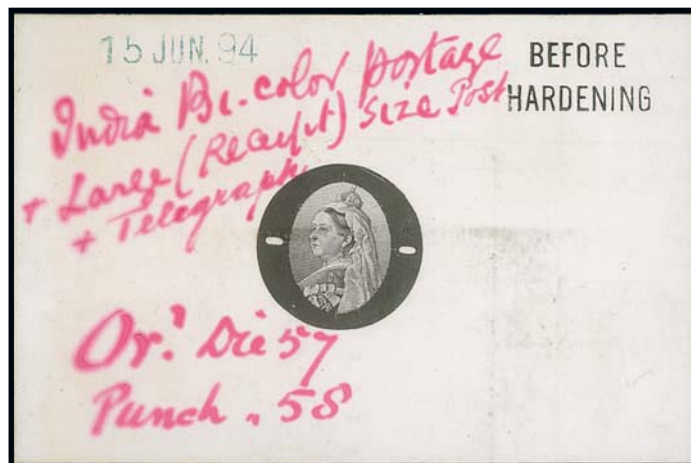 15 JUN. 94
BEFORE
HARDENING
India Bi-color postage
+ Large (Receipt) Size Post
+ Telegraph
Or? Die 57
Punch . 58